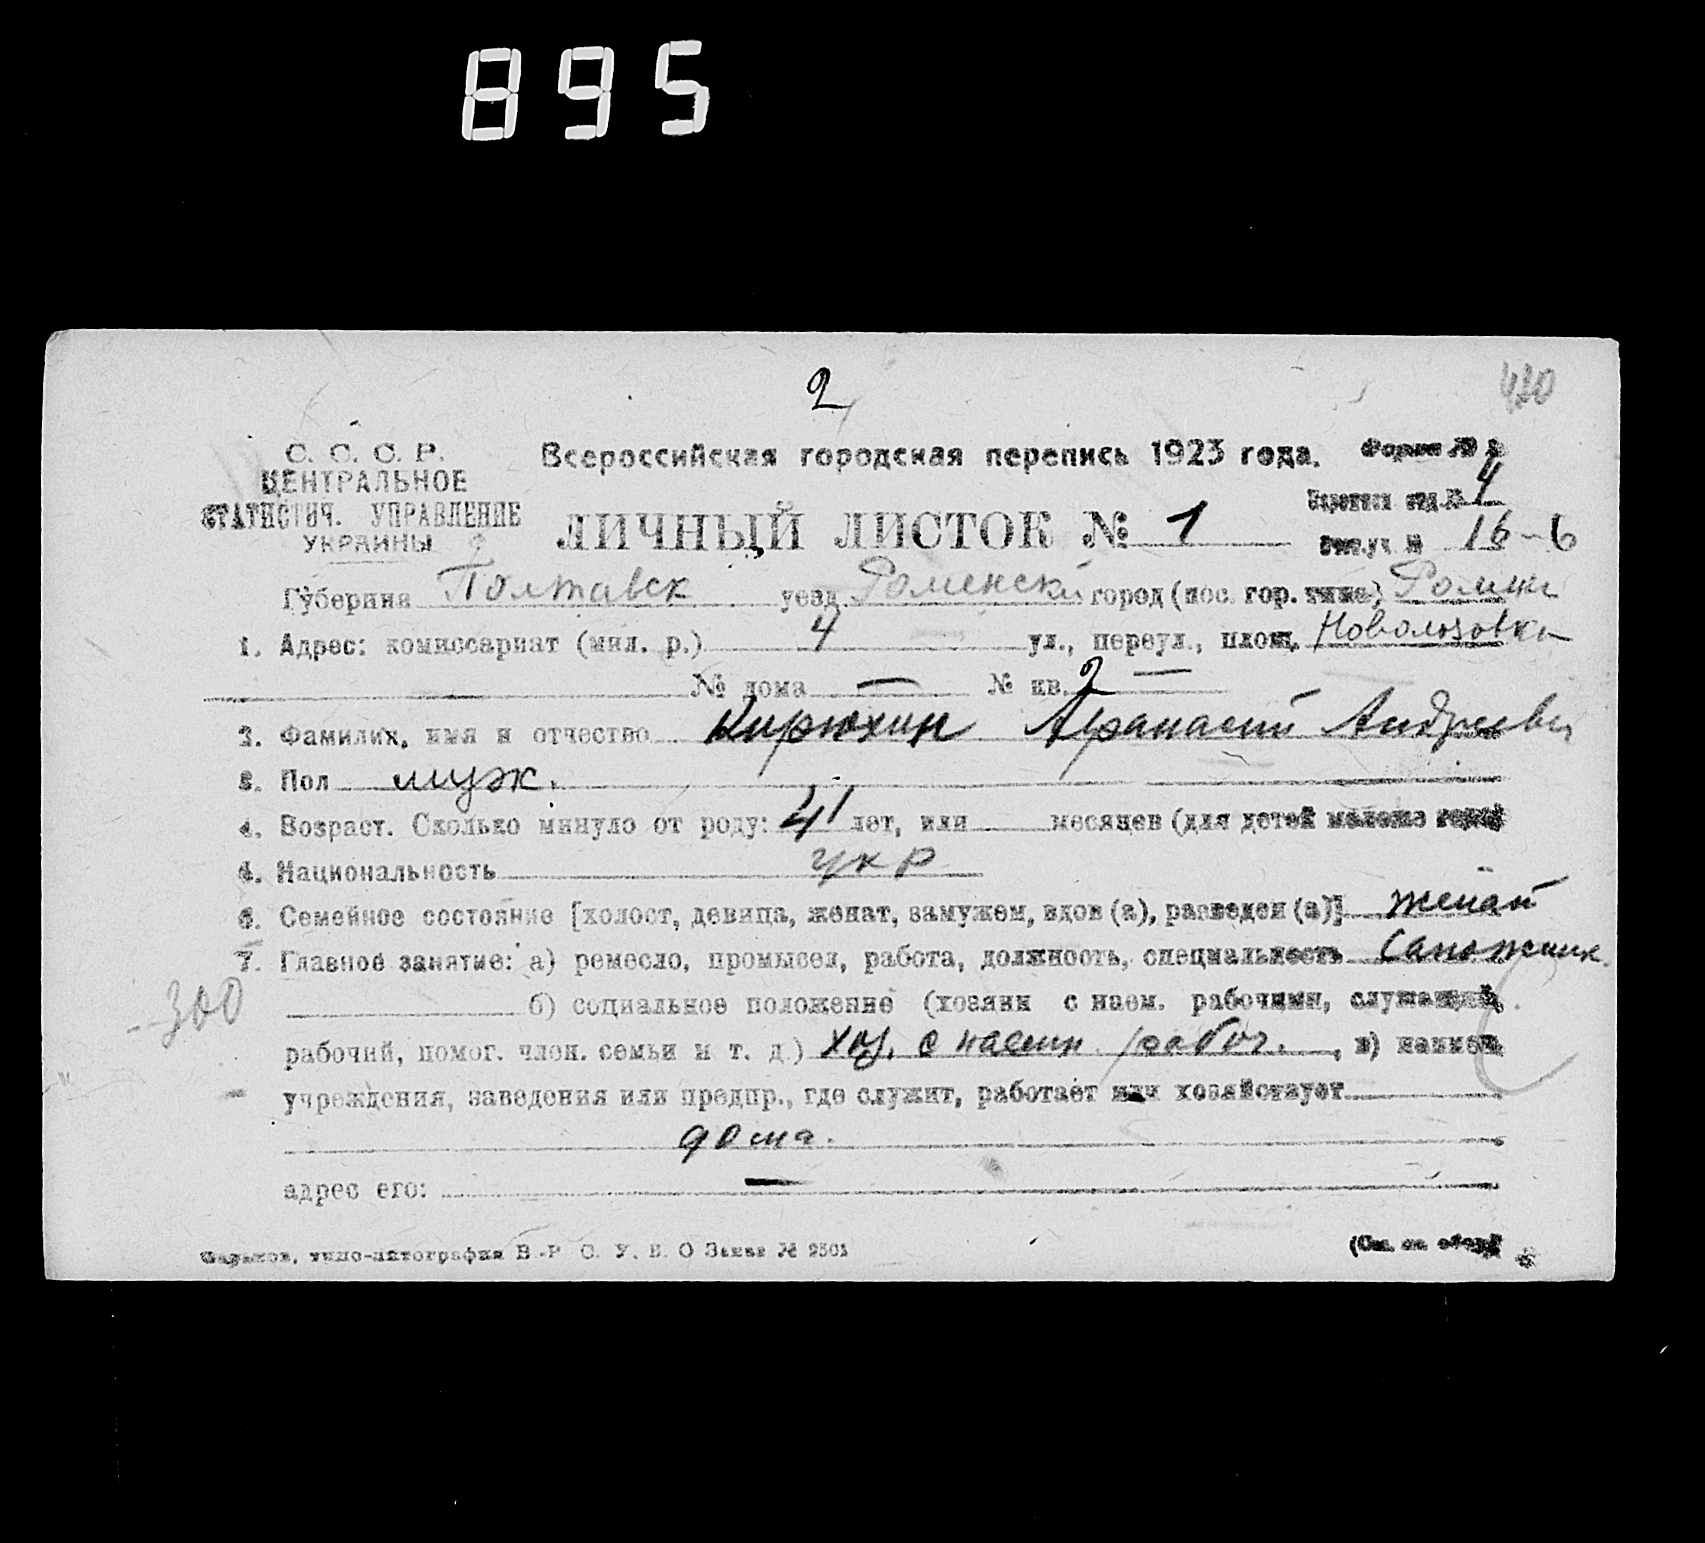 895
2
430
С. С. С. Р.
ЦЕНТРАЛЬНОЕ
СТАТИСТИЧ. УПРАВЛЕНИЕ
УКРАИНЫ
Всероссийская городская перепись 1923 года.
Форма №
4
ЛИЧНЫЙ ЛИСТОК № 1
уч. № 16-6
Губерния Полтавск уезд Роменск город (пос. гор. типа) Ромны
1. Адрес: комиссариат (мил. р.) 4 ул., переул., площ.
№ дома — № кв. 2 —
2. Фамилия, имя и отчество Кирюхин Афанасий Андреев
3. Пол муж.
4. Возраст. Сколько минуло от роду: 41 лет, или месяцев (для детей моложе года)
4. Национальность укр
6. Семейное состояние [холост, девица, женат, замужем, вдов (а), разведен (а)] женат
7. Главное занятие: а) ремесло, промысел, работа, должность, специальность Сапожник.
300
б) социальное положение (хозяин с наем. рабочими, служащий,
рабочий, помог. член. семьи и т. д.) хоз. с наемн. рабоч. , в) наимен.
учреждения, заведения или предпр., где служит, работает или хозяйствует
дома.
адрес его: —
Харьков, типо-литография В.-Р С. У. В. О Заказ №
(См. на обор.)